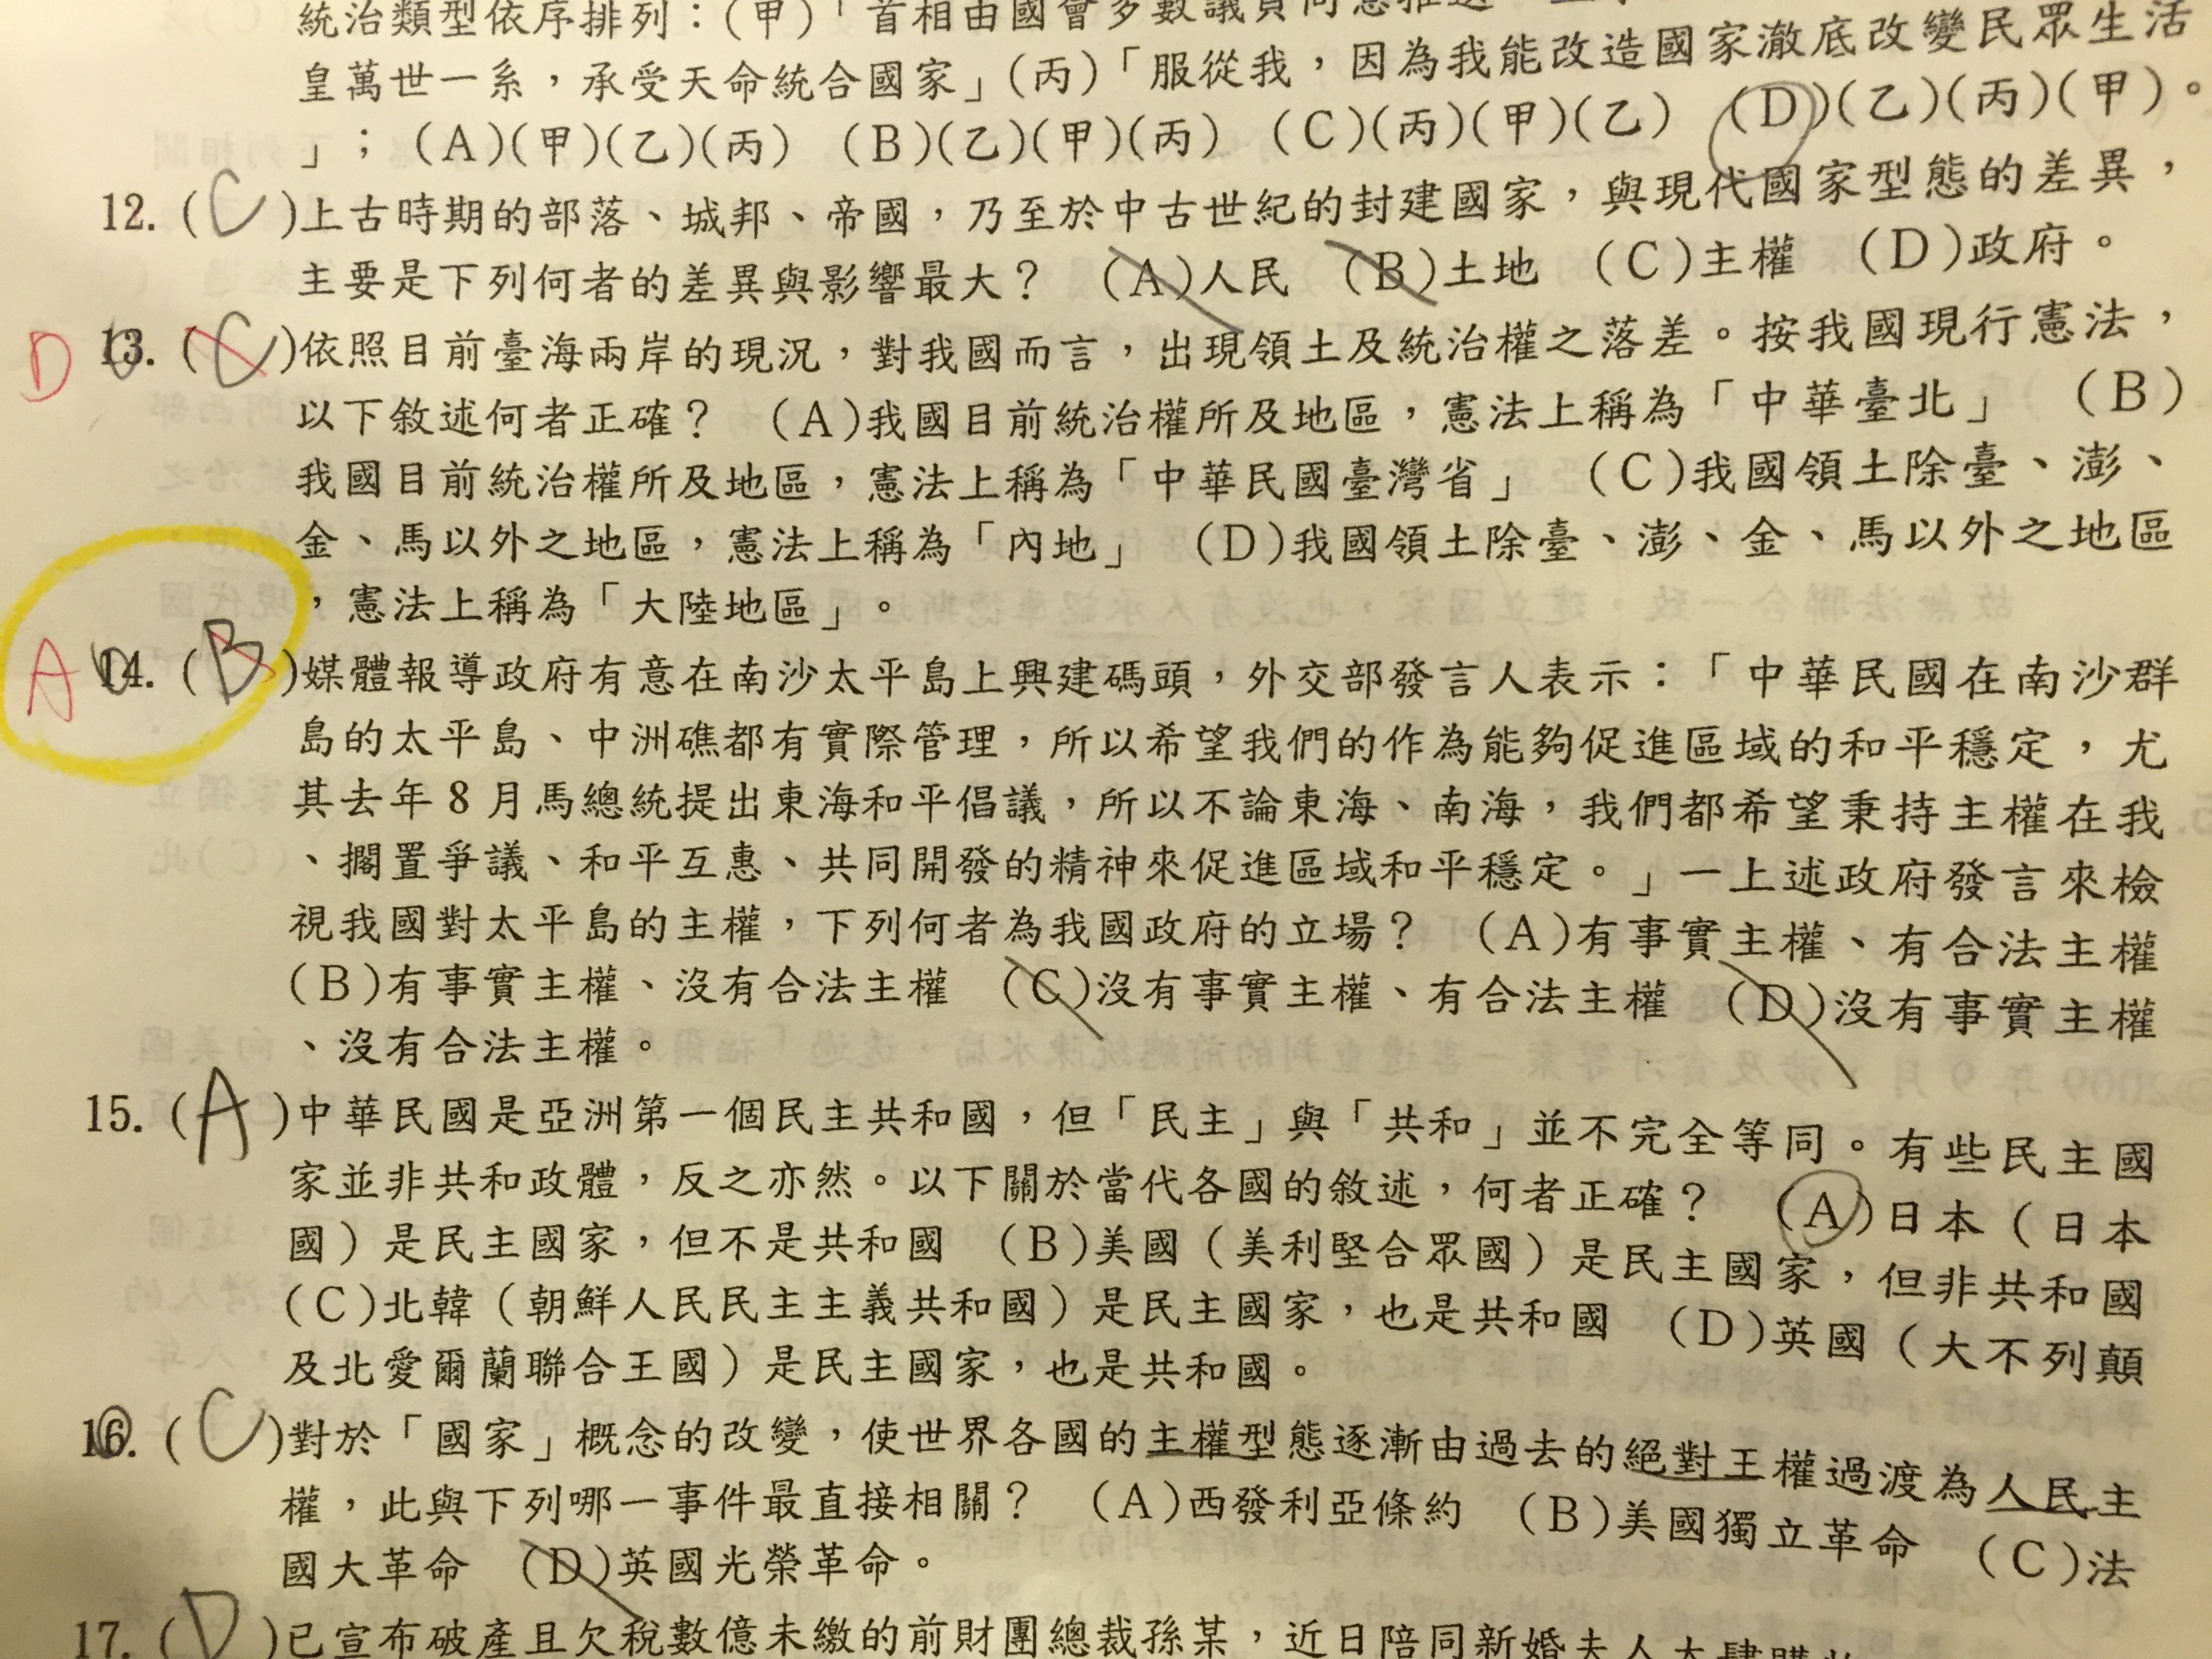 統治類型依序排列：(甲)「首相由國會多數議員同意推選
皇萬世一系，承受天命統合國家」(丙)「服從我，因為我能改造國家澈底改變民眾生活
」；(A)(甲)(乙)(丙) (B)(乙)(甲)(丙) (C)(丙)(甲)(乙) (D)(乙)(丙)(甲)。
12. (C)上古時期的部落、城邦、帝國，乃至於中古世紀的封建國家，與現代國家型態的差異，
主要是下列何者的差異與影響最大？ (A)人民 (B)土地 (C)主權 (D)政府。
D 13. (C)依照目前臺海兩岸的現況，對我國而言，出現領土及統治權之落差。按我國現行憲法，
以下敘述何者正確？ (A)我國目前統治權所及地區，憲法上稱為「中華臺北」 (B)
我國目前統治權所及地區，憲法上稱為「中華民國臺灣省」 (C)我國領土除臺、澎、
金、馬以外之地區，憲法上稱為「內地」 (D)我國領土除臺、澎、金、馬以外之地區
，憲法上稱為「大陸地區」。
A 14. (B)媒體報導政府有意在南沙太平島上興建碼頭，外交部發言人表示：「中華民國在南沙群
島的太平島、中洲礁都有實際管理，所以希望我們的作為能夠促進區域的和平穩定，尤
其去年8月馬總統提出東海和平倡議，所以不論東海、南海，我們都希望秉持主權在我
、擱置爭議、和平互惠、共同開發的精神來促進區域和平穩定。」一上述政府發言來檢
視我國對太平島的主權，下列何者為我國政府的立場？ (A)有事實主權、有合法主權
(B)有事實主權、沒有合法主權 (C)沒有事實主權、有合法主權 (D)沒有事實主權
、沒有合法主權。
15. (A)中華民國是亞洲第一個民主共和國，但「民主」與「共和」並不完全等同。有些民主國
家並非共和政體，反之亦然。以下關於當代各國的敘述，何者正確？ (A)日本（日本
國）是民主國家，但不是共和國 (B)美國（美利堅合眾國）是民主國家，但非共和國
(C)北韓（朝鮮人民民主主義共和國）是民主國家，也是共和國 (D)英國（大不列顛
及北愛爾蘭聯合王國）是民主國家，也是共和國。
16. (C)對於「國家」概念的改變，使世界各國的主權型態逐漸由過去的絕對王權過渡為人民主
權，此與下列哪一事件最直接相關？ (A)西發利亞條約 (B)美國獨立革命 (C)法
國大革命 (D)英國光榮革命。
17. (D)已宣布破產且欠稅數億未繳的前財團總裁孫某，近日陪同新婚夫人大肆購